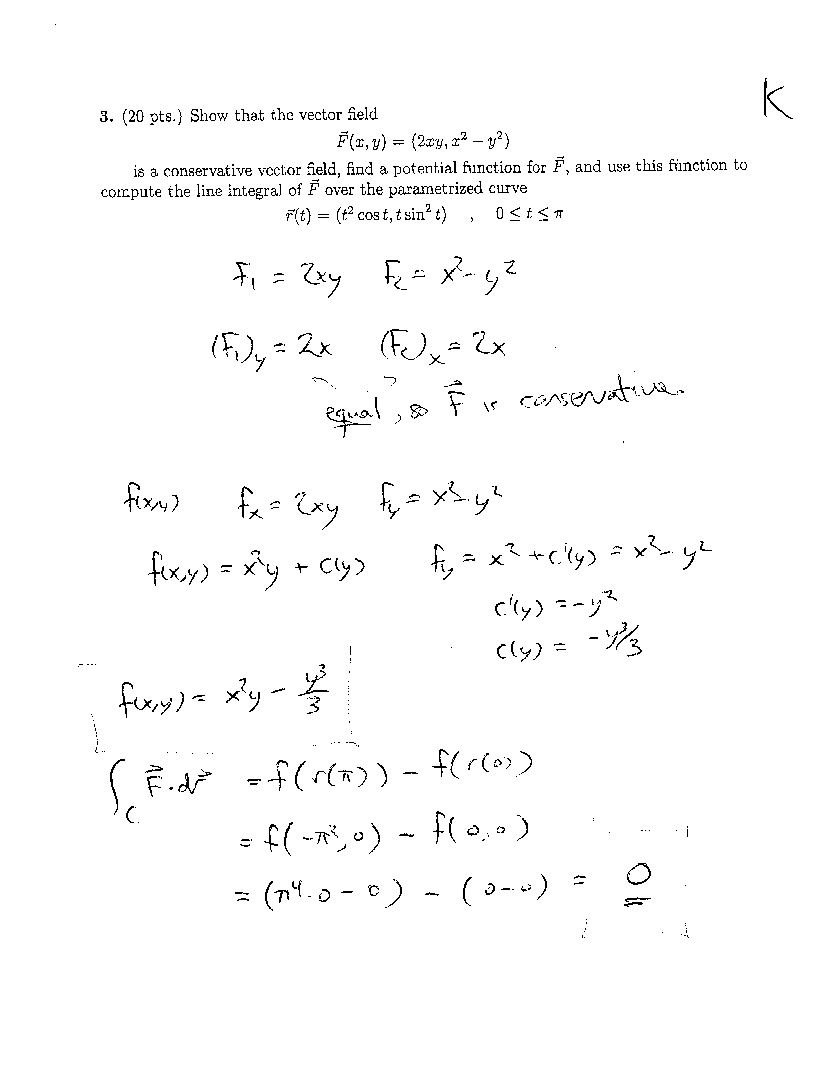 K
3. (20 pts.) Show that the vector field
F⃗(x, y) = (2xy, x² − y²)
is a conservative vector field, find a potential function for F⃗, and use this function to
compute the line integral of F⃗ over the parametrized curve
r⃗(t) = (t² cos t, t sin² t) , 0 ≤ t ≤ π
F₁ = 2xy F₂ = x² − y²
(F₁)_y = 2x (F₂)_x = 2x
equal, so F⃗ is conservative.
f(x,y) f_x = 2xy f_y = x² − y²
f(x,y) = x²y + c(y) f_y = x² + c'(y) = x² − y²
c'(y) = −y²
c(y) = −y³/3
f(x,y) = x²y − y³/3
∫_C F⃗·dr⃗ = f(r(π)) − f(r(0))
= f(−π², 0) − f(0,0)
= (π⁴·0 − 0) − (0−0) = 0